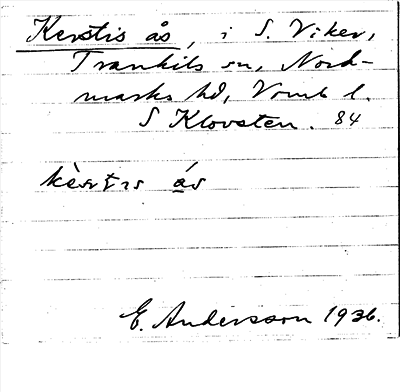 Kerstis ås, i S. Viker,
Trankils sn, Nord-
marks hd, Vrml l.
S Klovsten. 84
kèstis ás
E. Andersson 1936.